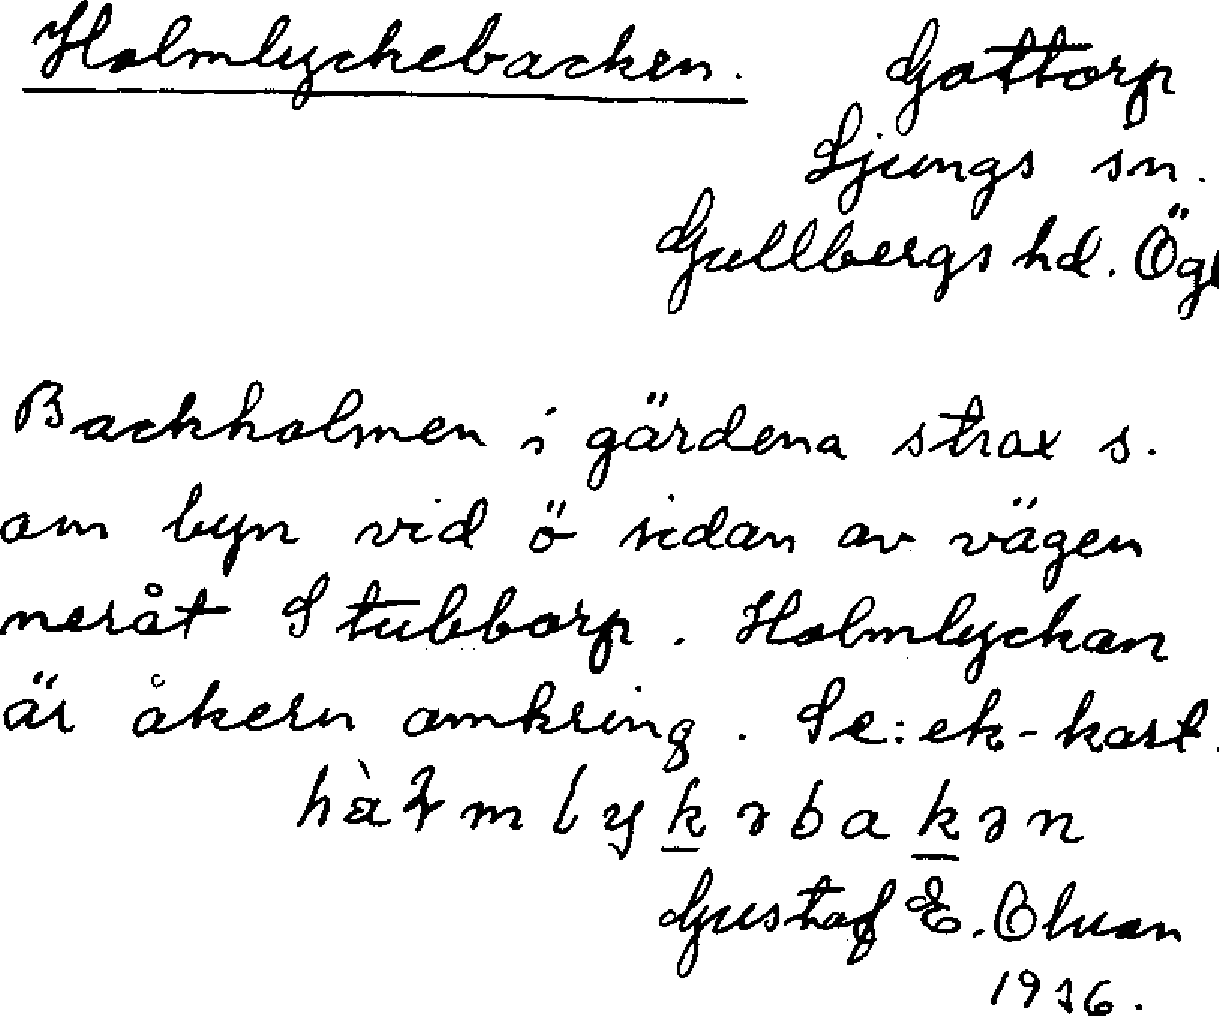 Holmlyckebacken. Gottorp
Ljungs sn.
Gullbergs hd. Ögl
Backholmen i gärdena strax s.
om byn vid ö sidan av vägen
neråt Stubborp. Holmlyckan
är åkern omkring. Se: ek-kart.
hàɫmlykəbakən
Gustaf E.